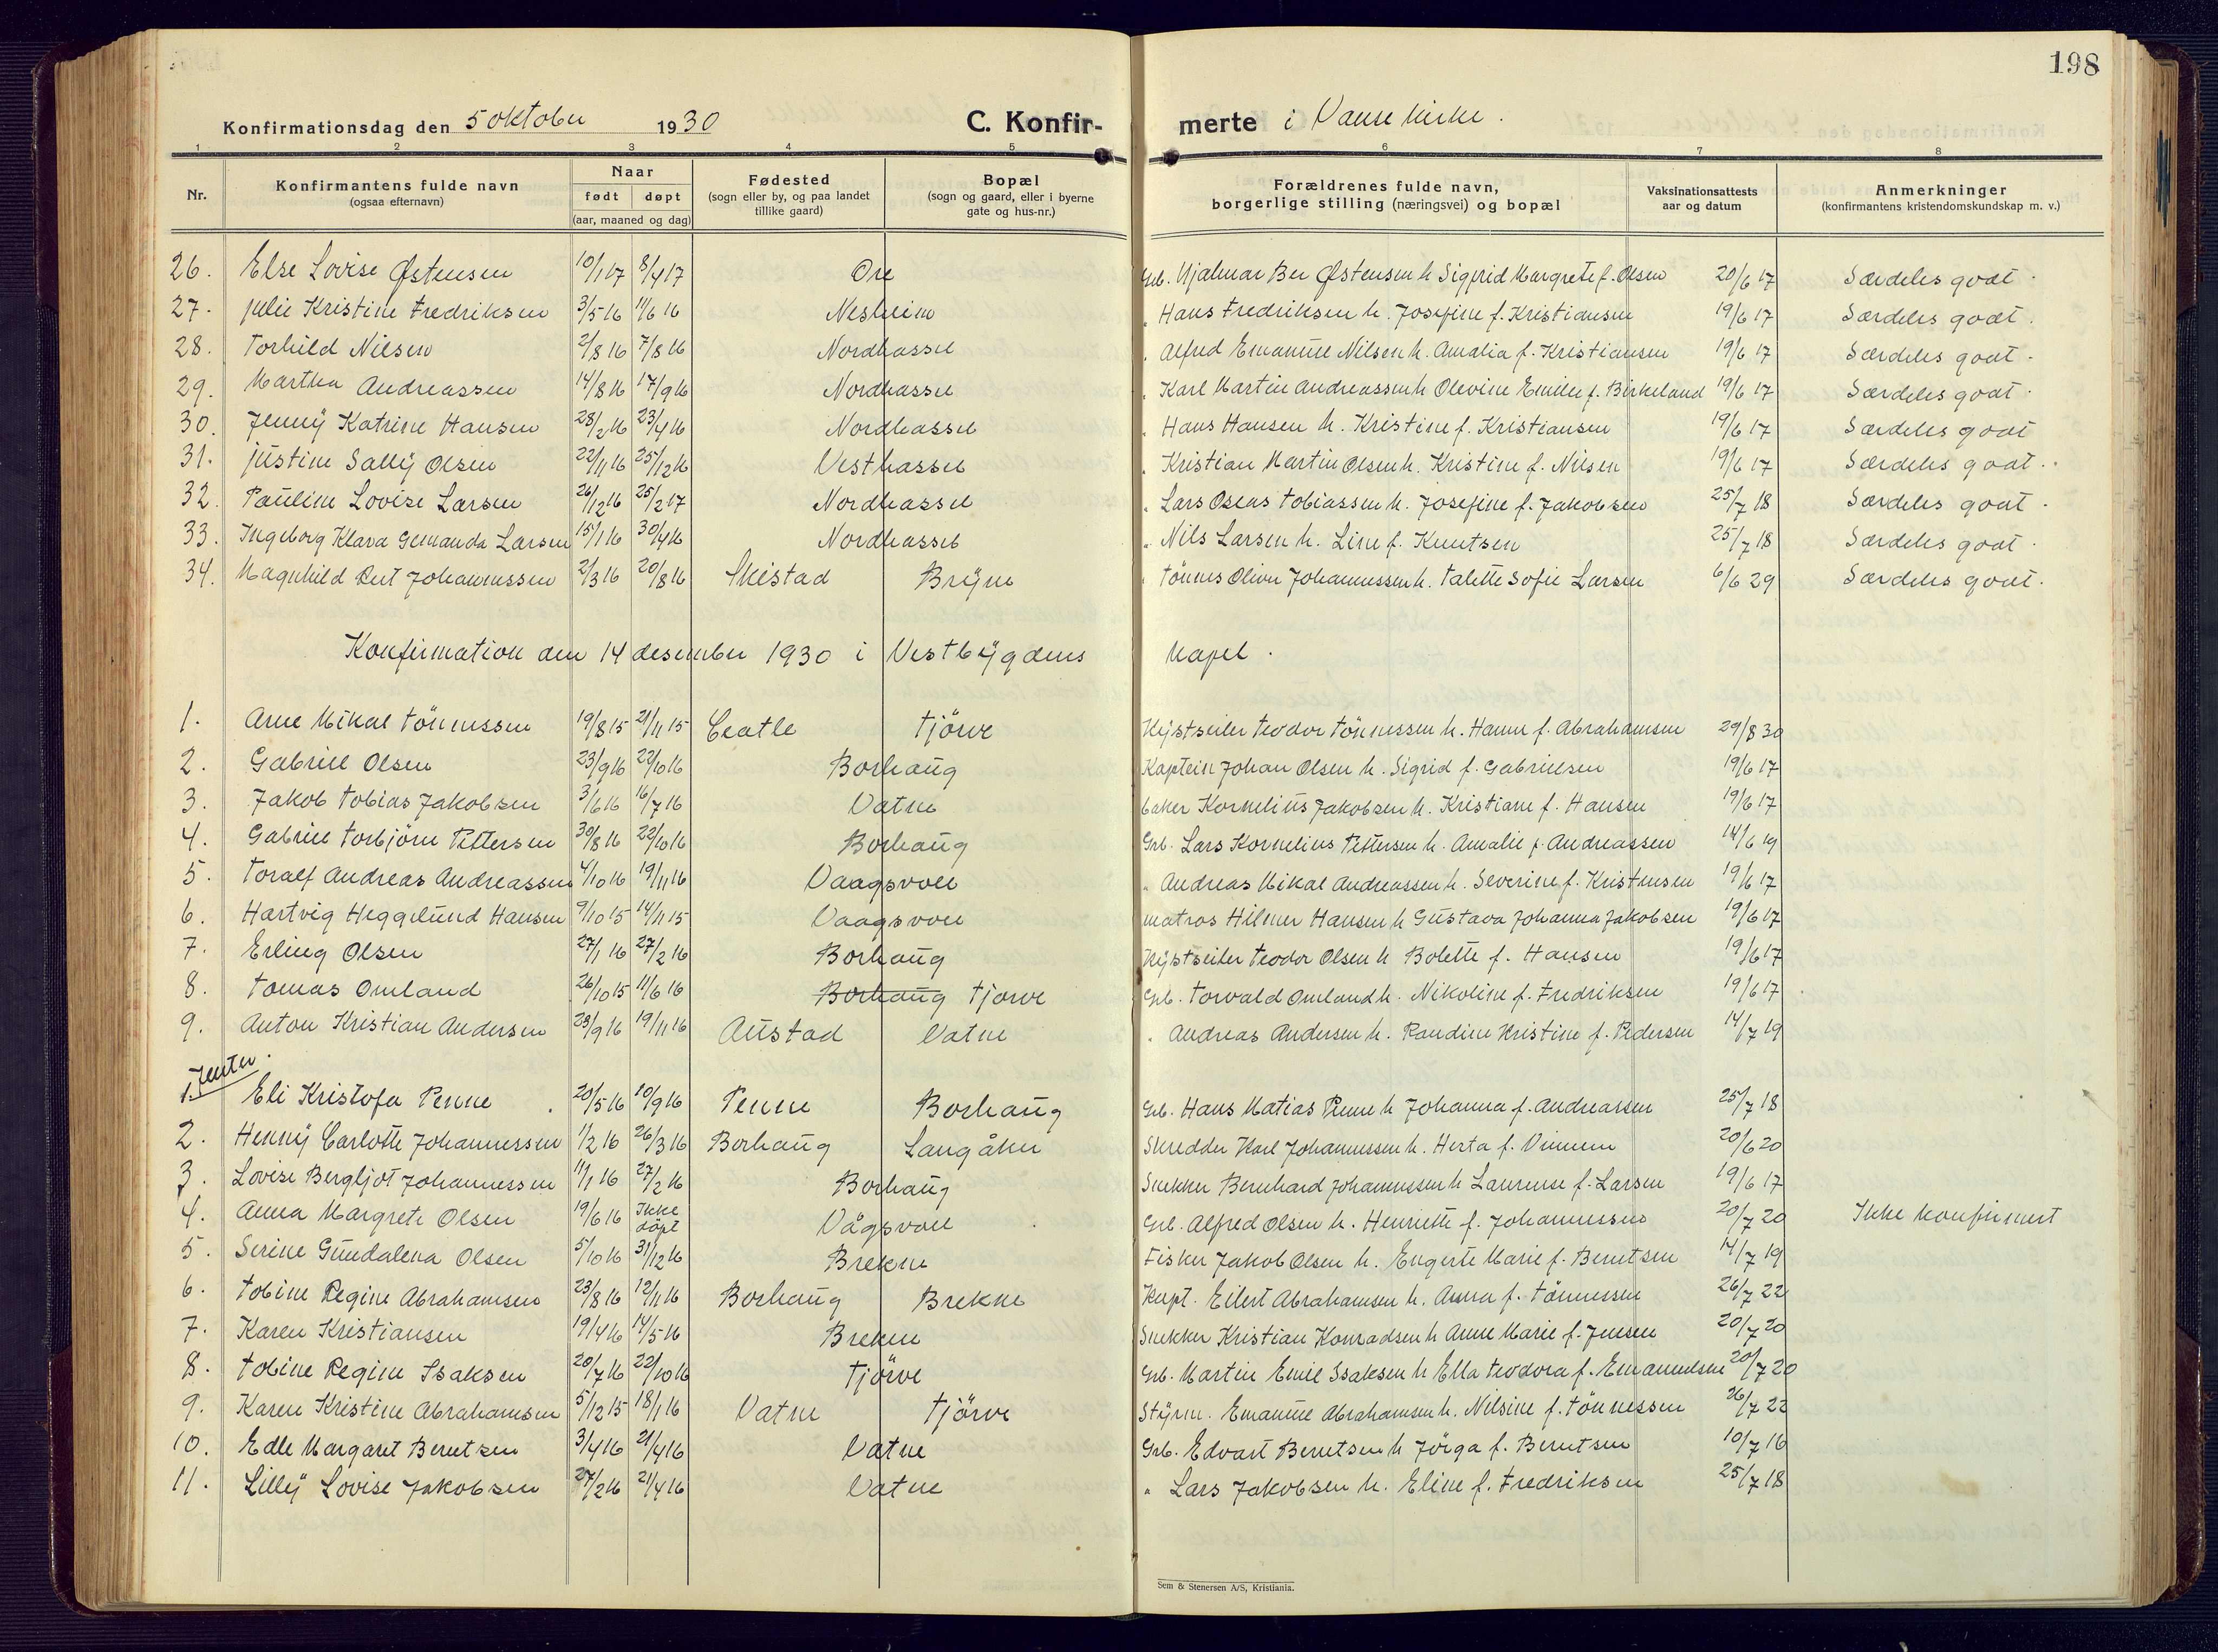 198
Konfirmationsdag den 5 oktober 1930 C. Konfir- merte i Vanse kirke.
1 2 3 4 5 6 7 8
Nr. Konfirmantens fulde navn (ogsaa efternavn) Naar født døpt (aar, maaned og dag) Fødested (sogn eller by, og paa landet tillike gaard) Bopæl (sogn og gaard, eller i byerne gate og hus-nr.) Forældrenes fulde navn, borgerlige stilling (næringsvei) og bopæl Vaksinationsattests aar og datum Anmerkninger (konfirmantens kristendomskundskap m. v.)
26. Else Lovise Østensen 10/1 17 8/4 17 Ore Grb. Hjalmar Ber Østensen h Sigfrid Margrete f. Olsen 20/6 17 Særdeles godt.
27. Julie Kristine Fredriksen 3/5 16 11/6 16 Nesheim " Hans Fredriksen h. Josefine f. Kristiansen 19/6 17 Særdeles godt.
28. Torhild Nilsen 2/8 16 7/8 16 Nordhassel " Alfred Emanuel Nilsen h. Amalia f. Kristiansen 19/6 17 Særdeles godt.
29. Martha Andreassen 14/8 16 17/9 16 Nordhassel " Karl Martin Andreassen h Olevine Emilie f. Birkeland 19/6 17 Særdeles godt.
30. Jenny Katrine Hansen 28/2 16 23/4 16 Nordhassel " Hans Hansen h. Kristine f. Kristiansen 19/6 17 Særdeles godt
31. Justine Sally Olsen 22/11 16 25/12 16 Vesthassel " Kristian Martin Olsen h. Kristine f. Nilsen 19/6 17 Særdeles godt.
32. Pauline Lovise Larsen 26/12 16 25/2 17 Nordhassel " Lars Oseas Tobiassen h. Josefine f. Jakobsen 25/7 18 Særdeles godt.
33. Ingeborg Klara Gemanda Larsen 15/1 16 30/4 16 Nordhassel " Nils Larsen h. Line f. Knutsen 25/7 18 Særdeles godt.
34. Magnhild Rut Johannessen 2/3 16 20/8 16 Skistad Bryne " Tönnes Oliver Johannessen h. Talette Sofie Larsen 6/6 29 Særdeles godt.
Konfirmation den 14 desember 1930 i Vestbygdens kapel.
1. Arne Mikal Tönnessen 19/8 15 21/11 15 Ceatle Tjörve Kystseiler Teodor Tönnessen h. Hanne f. Abrahamsen 29/8 30
2. Gabriel Olsen 23/9 16 22/10 16 Borhaug Kaptein Johan Olsen h. Sigrid f. Gabrielsen 19/6 17
3. Jakob Tobias Jakobsen 3/6 16 16/7 16 Vatne baker Kornelius Jakobsen h. Kristiane f. Hansen 19/6 17
4. Gabriel Torbjörn Pettersen 30/8 16 22/10 16 Borhaug Grb. Lars Kornelius Pettersen h. Amalie f. Andreassen 14/6 19
5. Toralf Andreas Andreassen 4/10 16 19/11 16 Vaagsvoll " Andreas Mikal Andreassen h. Severine f. Kristensen 19/6 17
6. Hartvig Hegglund Hansen 9/10 15 14/11 15 Vaagsvoll matros Hilmer Hansen h Gustava Johanna Jakobsen 19/6 17
7. Erling Olsen 27/1 16 27/2 16 Borhaug Kystseiler Teodor Olsen h Bolette f. Hansen 19/6 17
8. Tomas Omland 26/10 15 11/6 16 Borhaug Tjorve Grb. Torvald Omland h. Nikoline f. Fredriksen 19/6 17
9. Anton Kristian Andersen 23/9 16 19/11 16 Austad Vatne " Andreas Andersen h. Randine Kristine f. Pedersen 14/7 19
Jenter.
1. Eli Kristofa Penne 20/5 16 10/9 16 Penne Borhaug Grb. Hans Matias Penne h Johanna f. Andreassen 25/7 18
2. Henny Carlotte Johannessen 1/2 16 26/3 16 Borhaug Langåker Skredder Karl Johannessen h. Herta f. Vinnem 20/6 20
3. Lovise Bergljot Johannessen 11/1 16 27/2 16 Borhaug Snekker Bernhard Johannessen h Laurense f. Larsen 19/6 17
4. Anna Margrete Olsen 19/6 16 Ikke döpt Vågsvoll Grb. Alfred Olsen h. Henriette f. Johannessen 20/7 20 Ikke konfirmert
5. Serine Gundalena Olsen 5/10 16 31/12 16 Brekne Fisker Jakob Olsen h. Engerte Marie f. Berntsen 14/7 19
6. Tobine Regine Abrahamsen 23/8 16 12/11 16 Borhaug Brekne Kapt. Eilert Abrahamsen h. Anna f. Tönnessen 26/7 22
7. Karen Kristiansen 19/4 16 14/5 16 Brekne Snekker Kristian Konradsen h Anne Marie f. Jensen 20/7 20
8. Tobine Regine Isaksen 20/7 16 22/10 16 Tjörve Grb. Martin Emil Isaksen h Ella Teodora f. Emanuelsen 20/7 20
9. Karen Kristine Abrahamsen 5/12 15 18/1 16 Vatne Tjörve Styrm. Emanuel Abrahamsen h. Nilsine f. Tönnessen 26/7 22
10. Edle Margaret Berntsen 3/4 16 21/4 16 Vatne Grb. Edvart Berntsen h Jörga f. Berntsen 10/7 16
11. Lilly Lovise Jakobsen 27/2 16 21/4 16 Vatne " Lars Jakobsen h. Eline f. Fredriksen 25/7 18
Sem & Stenersen A/S, Kristiania.